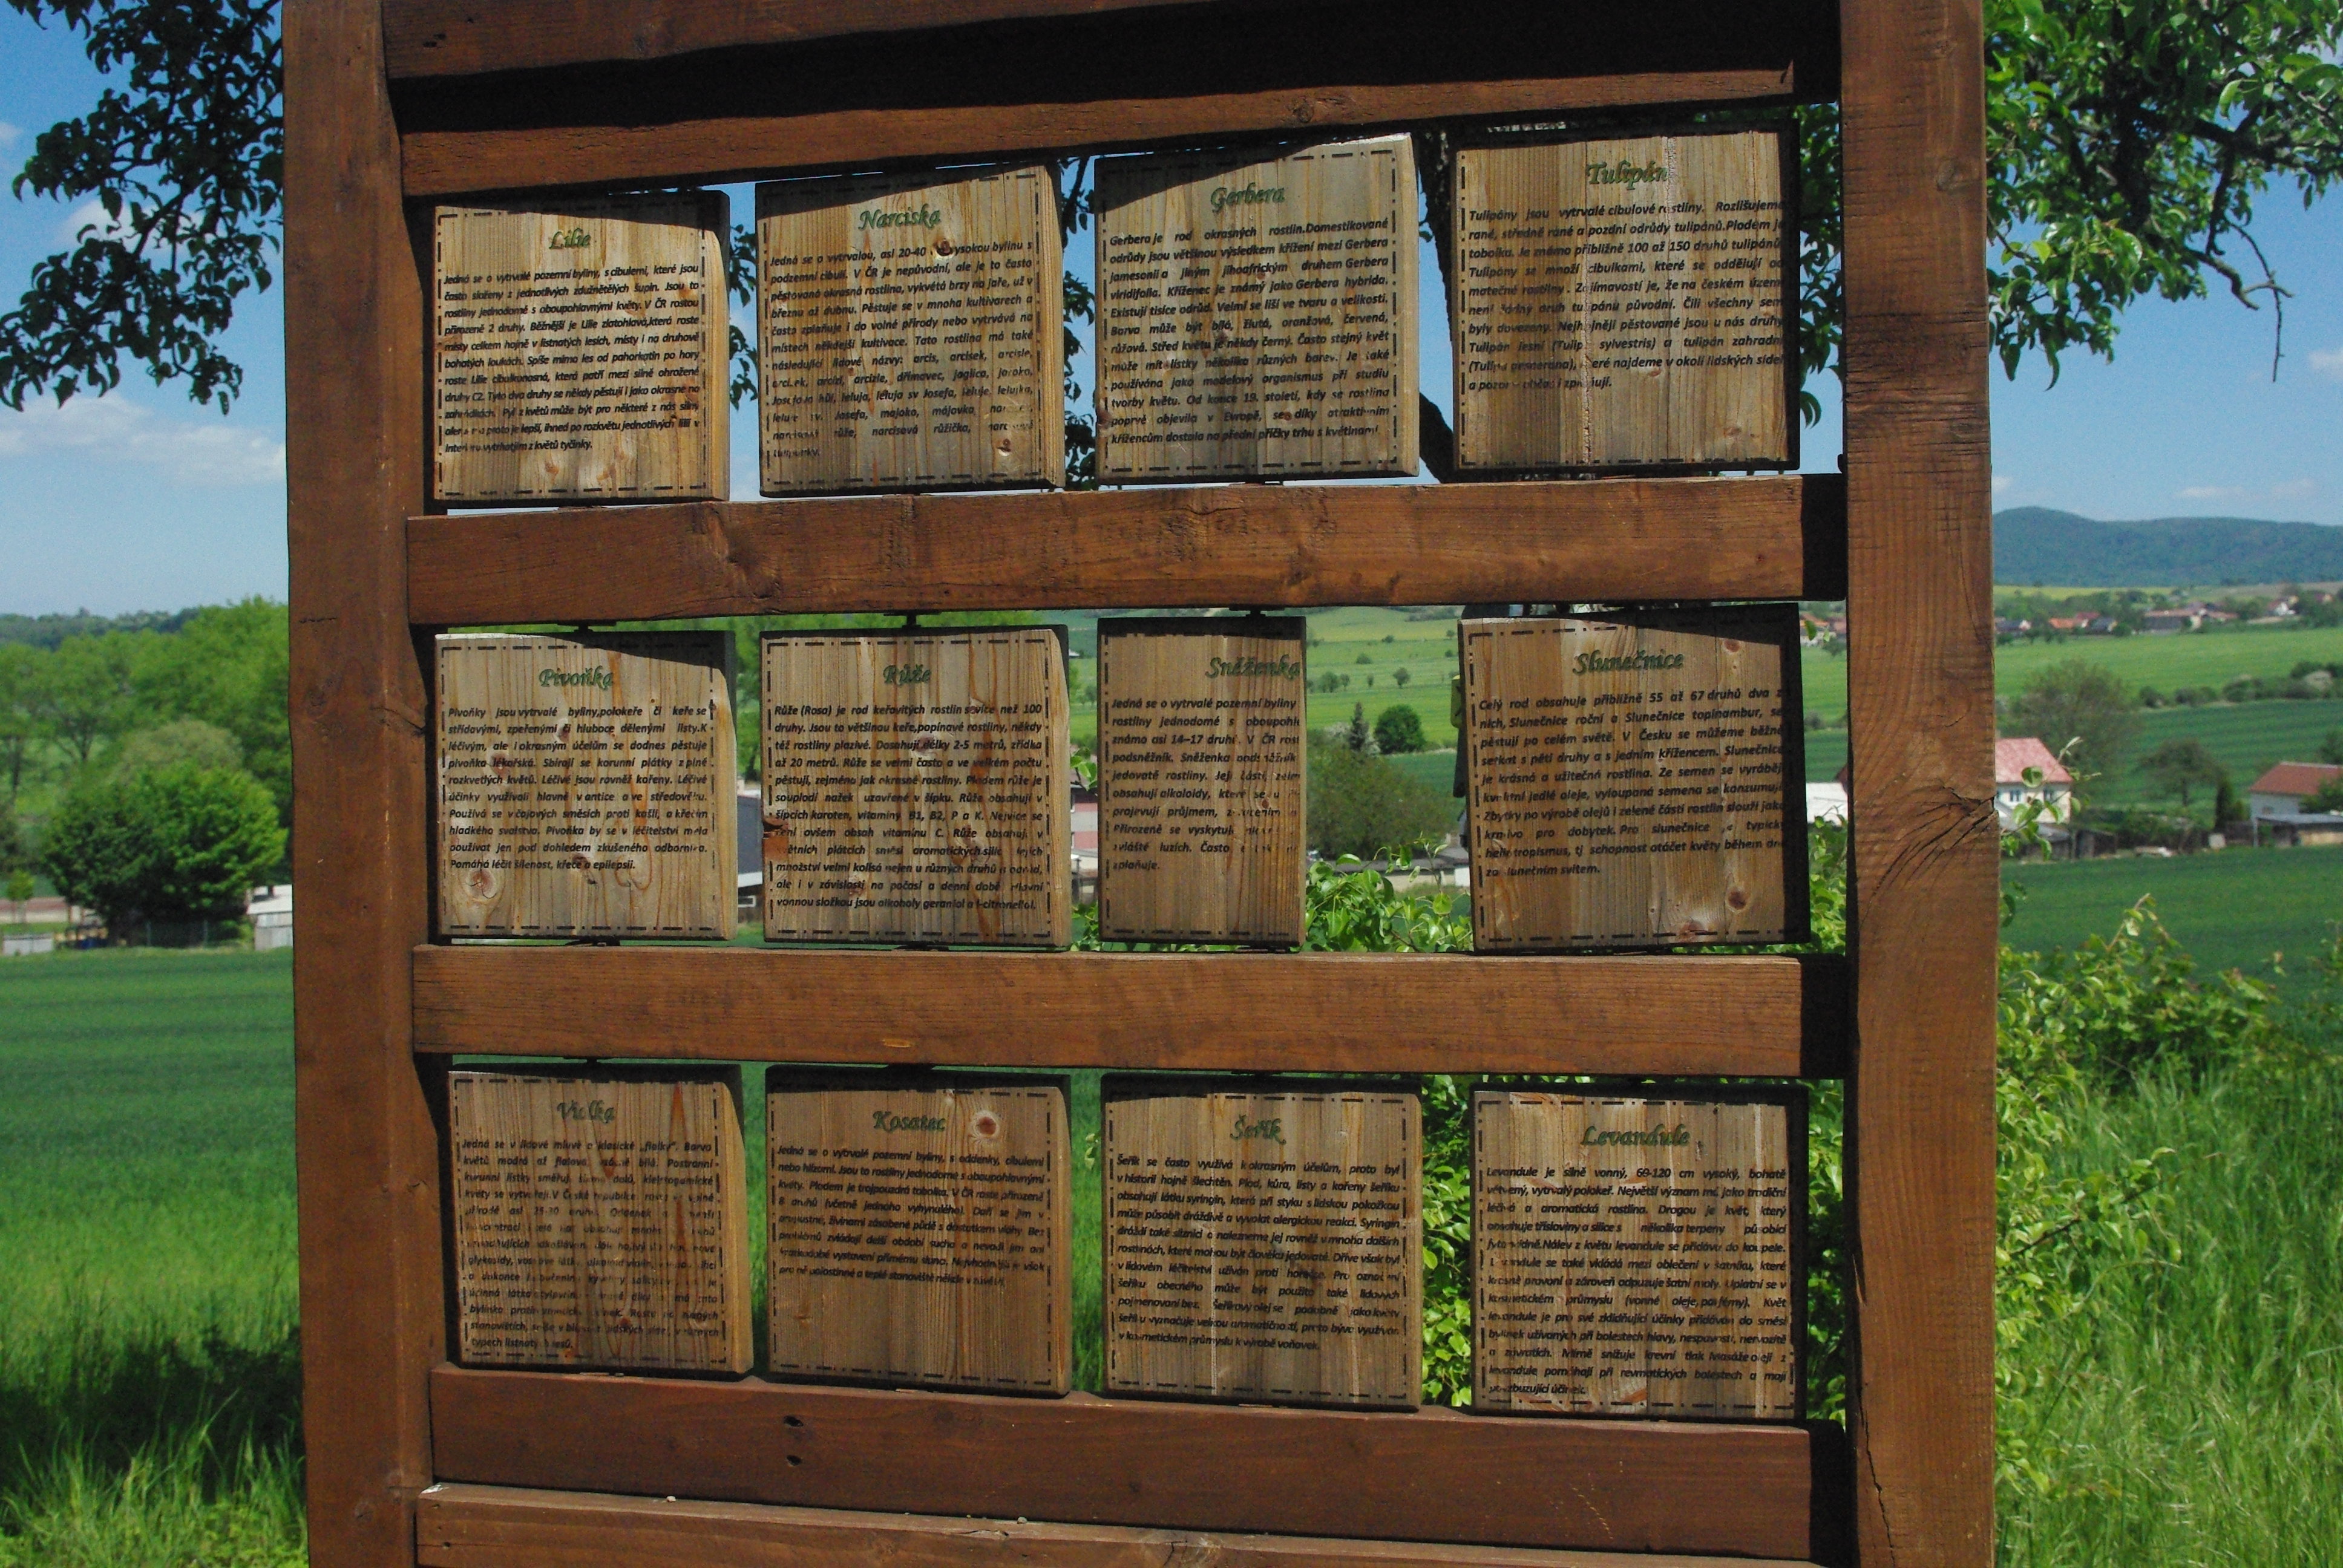 Lilie
Jedná se o vytrvalé pozemní byliny, s cibulemi, které jsou
často složeny z jednotlivých zdužnětělých šupin. Jsou to
rostliny jednodomé s oboupohlavnými květy. V ČR rostou
přirozeně 2 druhy. Běžnější je Lilie zlatohlavá,která roste
místy celkem hojně v listnatých lesích, místy i na druhově
bohatých loukách. Spíše mimo les od pahorkatin po hory
roste Lilie cibulkonosná, která patří mezi silně ohrožené
druhy C2. Tyto dva druhy se někdy pěstují i jako okrasné na
zahrádkách. Pyl z květů může být pro některé z nás silný
proto je lepší, ihned po rozkvětu jednotlivých lilií v
vytrhat jim z květů tyčinky.
Narciska
Jedná se o vytrvalou, asi 20-40 vysokou bylinu s
podzemní cibulí. V ČR je nepůvodní, ale je to často
pěstovaná okrasná rostlina, vykvétá brzy na jaře, už v
březnu až dubnu. Pěstuje se v mnoha kultivarech a
často zplaňuje i do volné přírody nebo vytrvává na
místech někdejší kultivace. Tato rostlina má také
následující lidové názvy: arcis, arcisek, arcisle,
arcizl, arcizle, dřímavec, jaglica, jaroka,
hůl, leluja, leluja sv Josefa, leluje, lelujka,
sv. Josefa, majoka, májovka,
růže, narcisová růžička,
Gerbera
Gerbera je rod okrasných rostlin.Domestikované
odrůdy jsou většinou výsledkem křížení mezi Gerbera
jamesonii a jiným jihoafrickým druhem Gerbera
viridifolia. Kříženec je známý jako Gerbera hybrida.
Existují tisíce odrůd. Velmi se liší ve tvaru a velikosti.
Barva může být bílá, žlutá, oranžová, červená,
růžová. Střed květu je někdy černý. Často stejný květ
může mít lístky několika různých barev. Je také
používána jako modelový organismus při studiu
tvorby květu. Od konce 19. století, kdy se rostlina
poprvé objevila v Evropě, se díky atraktivním
křížencům dostala na přední příčky trhu s květinami.
Tulipán
Tulipány jsou vytrvalé cibulové rostliny. Rozlišujeme
rané, středně rané a pozdní odrůdy tulipánů.Plodem je
tobolka. Je známo přibližně 100 až 150 druhů tulipánů.
Tulipány se množí cibulkami, které se oddělují od
matečné rostliny. Zajímavostí je, že na českém území
není žádný druh tulipánu původní. Čili všechny sem
byly dovezeny. Nejhojněji pěstované jsou u nás druhy
Tulipán lesní (Tulip sylvestris) a tulipán zahradní
(Tulipa gesnerana), které najdeme v okolí lidských sídel
a pozor občas i zplaňují.
Pivoňka
Pivoňky jsou vytrvalé byliny,polokeře či keře se
střídavými, zpeřenými či hluboce dělenými listy.K
léčivým, ale i okrasným účelům se dodnes pěstuje
pivoňka lékařská. Sbírají se korunní plátky z plně
rozkvetlých květů. Léčivé jsou rovněž kořeny. Léčivé
účinky využívali hlavně v antice a ve středověku.
Používá se v čajových směsích proti kašli, a křečím
hladkého svalstva. Pivoňka by se v léčitelství měla
používat jen pod dohledem zkušeného odborníka.
Pomáhá léčit šílenost, křeče a epilepsii.
Růže
Růže (Rosa) je rod keřovitých rostlin sovíce než 100
druhy. Jsou to většinou keře,popínavé rostliny, někdy
též rostliny plazivé. Dosahují délky 2-5 metrů, zřídka
až 20 metrů. Růže se velmi často a ve velkém počtu
pěstují, zejména jak okrasné rostliny. Plodem růže je
souplodí nažek uzavřené v šípku. Růže obsahují v
šípcích karoten, vitamíny B1, B2, P a K. Nejvíce se
cení ovšem obsah vitamínu C. Růže obsahují v
květních plátcích směsi aromatických silic jejich
množství velmi kolísá nejen u různých druhů a odrůd,
ale i v závislosti na počasí a denní době Hlavní
vonnou složkou jsou alkoholy geraniol a l-citronellol.
Sněženka
Jedná se o vytrvalé pozemní byliny
rostliny jednodomé s oboupohl
známo asi 14–17 druhů. V ČR rost
podsněžník. Sněženka podsněžník
jedovaté rostliny. Její části, zejm
obsahují alkaloidy, které se u
projevují průjmem, zvracením
Přirozeně se vyskytuj
zvláště luzích. Často
zplaňuje.
Slunečnice
Celý rod obsahuje přibližně 55 až 67 druhů dva z
nich, Slunečnice roční a Slunečnice topinambur, se
pěstují po celém světě. V Česku se můžeme běžně
setkat s pěti druhy a s jedním křížencem. Slunečnice
je krásná a užitečná rostlina. Ze semen se vyrábějí
kvalitní jedlé oleje, vyloupaná semena se konzumují
Zbytky po výrobě olejů i zelené části rostlin slouží jako
krmivo pro dobytek. Pro slunečnice je typický
heliotropismus, tj schopnost otáčet květy během dne
za slunečním svitem.
Violka
Jedná se v lidové mluvě o klasické „fialky“. Barva
květů modrá až fialová, vzácně bílá. Postranní
korunní lístky směřují šikmo dolů, kleistogamické
květy se vytvářejí.V České republice roste v volné
přírodě asi 25-30 druhů. Oddenek a
glykosidy,
účinná látka
bylinka proti Roste na různých
stanovištích, spíše v blízkosti lidských sídel, v různých
typech listnatých lesů.
Kosatec
Jedná se o vytrvalé pozemní byliny, s oddenky, cibulemi
nebo hlízami. Jsou to rostliny jednodomé s oboupohlavnými
květy. Plodem je trojpouzdrá tobolka. V ČR roste přirozeně
8 druhů (včetně jednoho vyhynulého). Daří se jim v
propustné, živinami zásobené půdě s dostatkem vláhy. Bez
problémů zvládají delší období sucha a nevadí jim ani
krátkodobé vystavení přímému slunci. Nejvhodnější je však
pro ně polostinné a teplé stanoviště někde v závětří.
Šeřík
Šeřík se často využívá k okrasným účelům, proto byl
v historii hojně šlechtěn. Plod, kůra, listy a kořeny šeříku
obsahují látku syringin, která při styku s lidskou pokožkou
může působit dráždivě a vyvolat alergickou reakci. Syringin
dráždí také sliznici a nalezneme jej rovněž v mnoha dalších
rostlinách, které mohou být člověku jedovaté. Dříve však byl
v lidovém léčitelství užíván proti horečce. Pro označení
šeříku obecného může být použito také lidových
pojmenovaní bez. Šeříkový olej se podobně jako květy
šeříku vyznačuje velkou aromatičností, proto bývá využíván
v kosmetickém průmyslu k výrobě voňavek.
Levandule
Levandule je silně vonný, 60-120 cm vysoký, bohatě
větvený, vytrvalý polokeř. Největší význam má jako tradiční
léčivá a aromatická rostlina. Drogou je květ, který
obsahuje třísloviny a silice s několika terpeny působící
fytoncidně.Nálev z květu levandule se přidává do koupele.
Levandule se také vkládá mezi oblečení v šatníku, které
krásně provoní a zároveň odpuzuje šatní moly. Uplatní se v
kosmetickém průmyslu (vonné oleje, parfémy). Květ
levandule je pro své zklidňující účinky přidáván do směsí
bylinek užívaných při bolestech hlavy, nespavosti, nervozitě
a závratích. Mírně snižuje krevní tlak Masáže oleji z
levandule pomáhají při revmatických bolestech a mají
povzbuzující účinek.